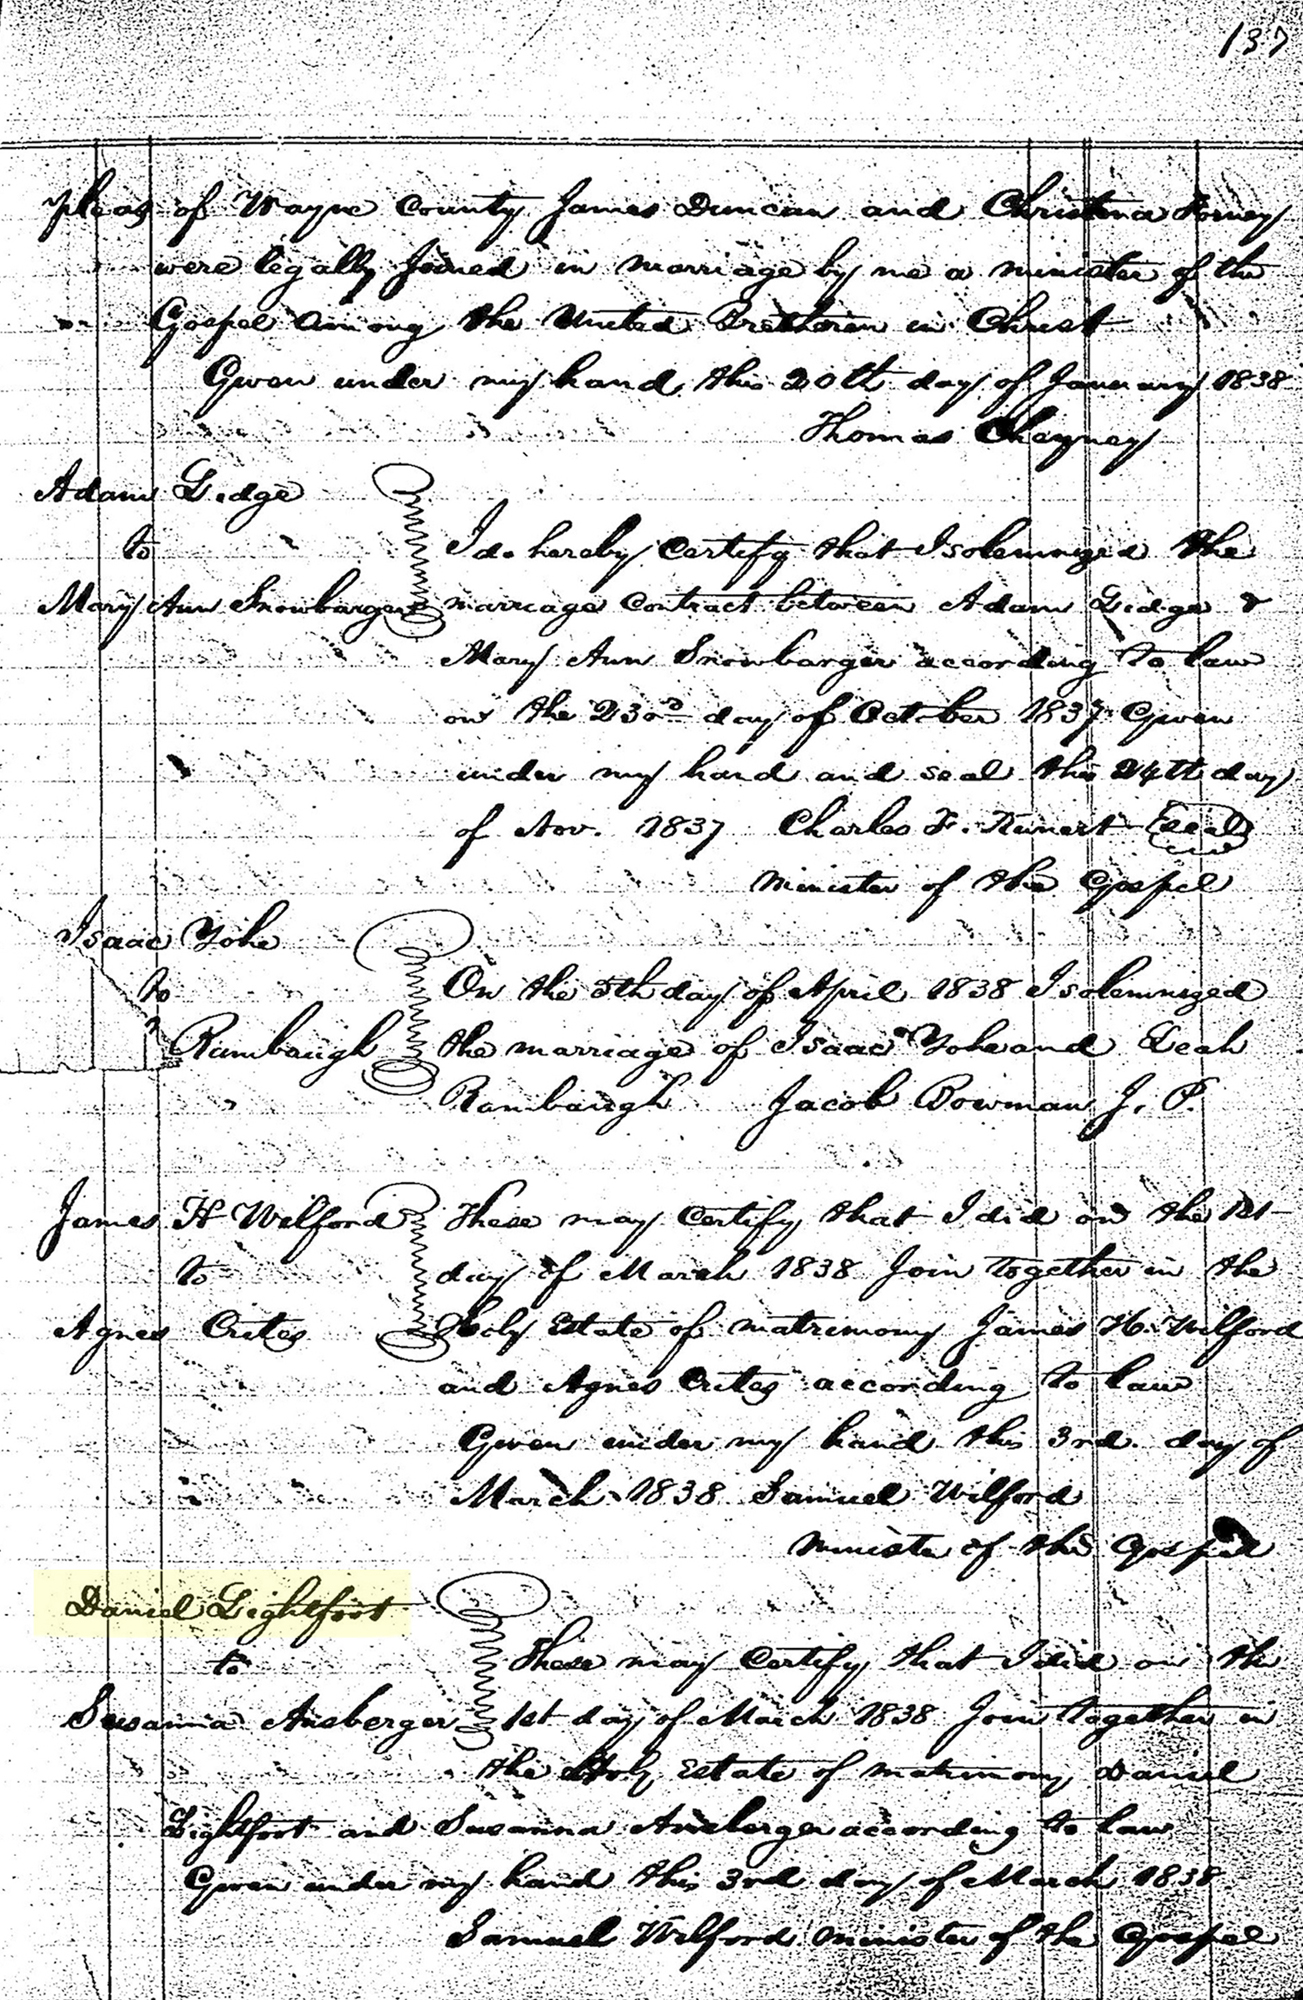 137
Pleas of Wayne County James Duncan and Christena Forney
were legally Joined in marriage by me a minister of the
Gospel Among the United Bretheren in Christ
Given under my hand this 20th day of January 1838
Thomas Chayney
Adam Gidge
to
I do hereby Certify that I solemnized the
Mary Ann Snowbarger marriage Contract between Adam Gidge &
Mary Ann Snowbarger according to law
on the 23rd day of October 1837 Given
under my hand and seal this 24th day
of Nov. 1837 Charles F. Seal
Minister of the Gospel
Isaac Yohe
to
On the 5th day of April 1838 I solemnized
Rambaugh the marriage of Isaac Yohe and Leah
Rambaugh Jacob Bowman J. P.
James H Welford These may Certify that I did on the 1st
to day of March 1838 Join together in the
Agnes Crites Holy Estate of matrimony James H. Wilford
and Agnes Crites according to law
Given under my hand this 3rd. day of
March 1838 Samuel Wilford
Minister of the Gospel
Daniel Lightfoot
to These may Certify that I did on the
Susanna Ansberger 1st day of March 1838 Join together in
the Holy Estate of matrimony Daniel
Lightfoot and Susanna Ansberger according to law
Given under my hand this 3rd day of March 1838
Samuel Wilford minister of the Gospel